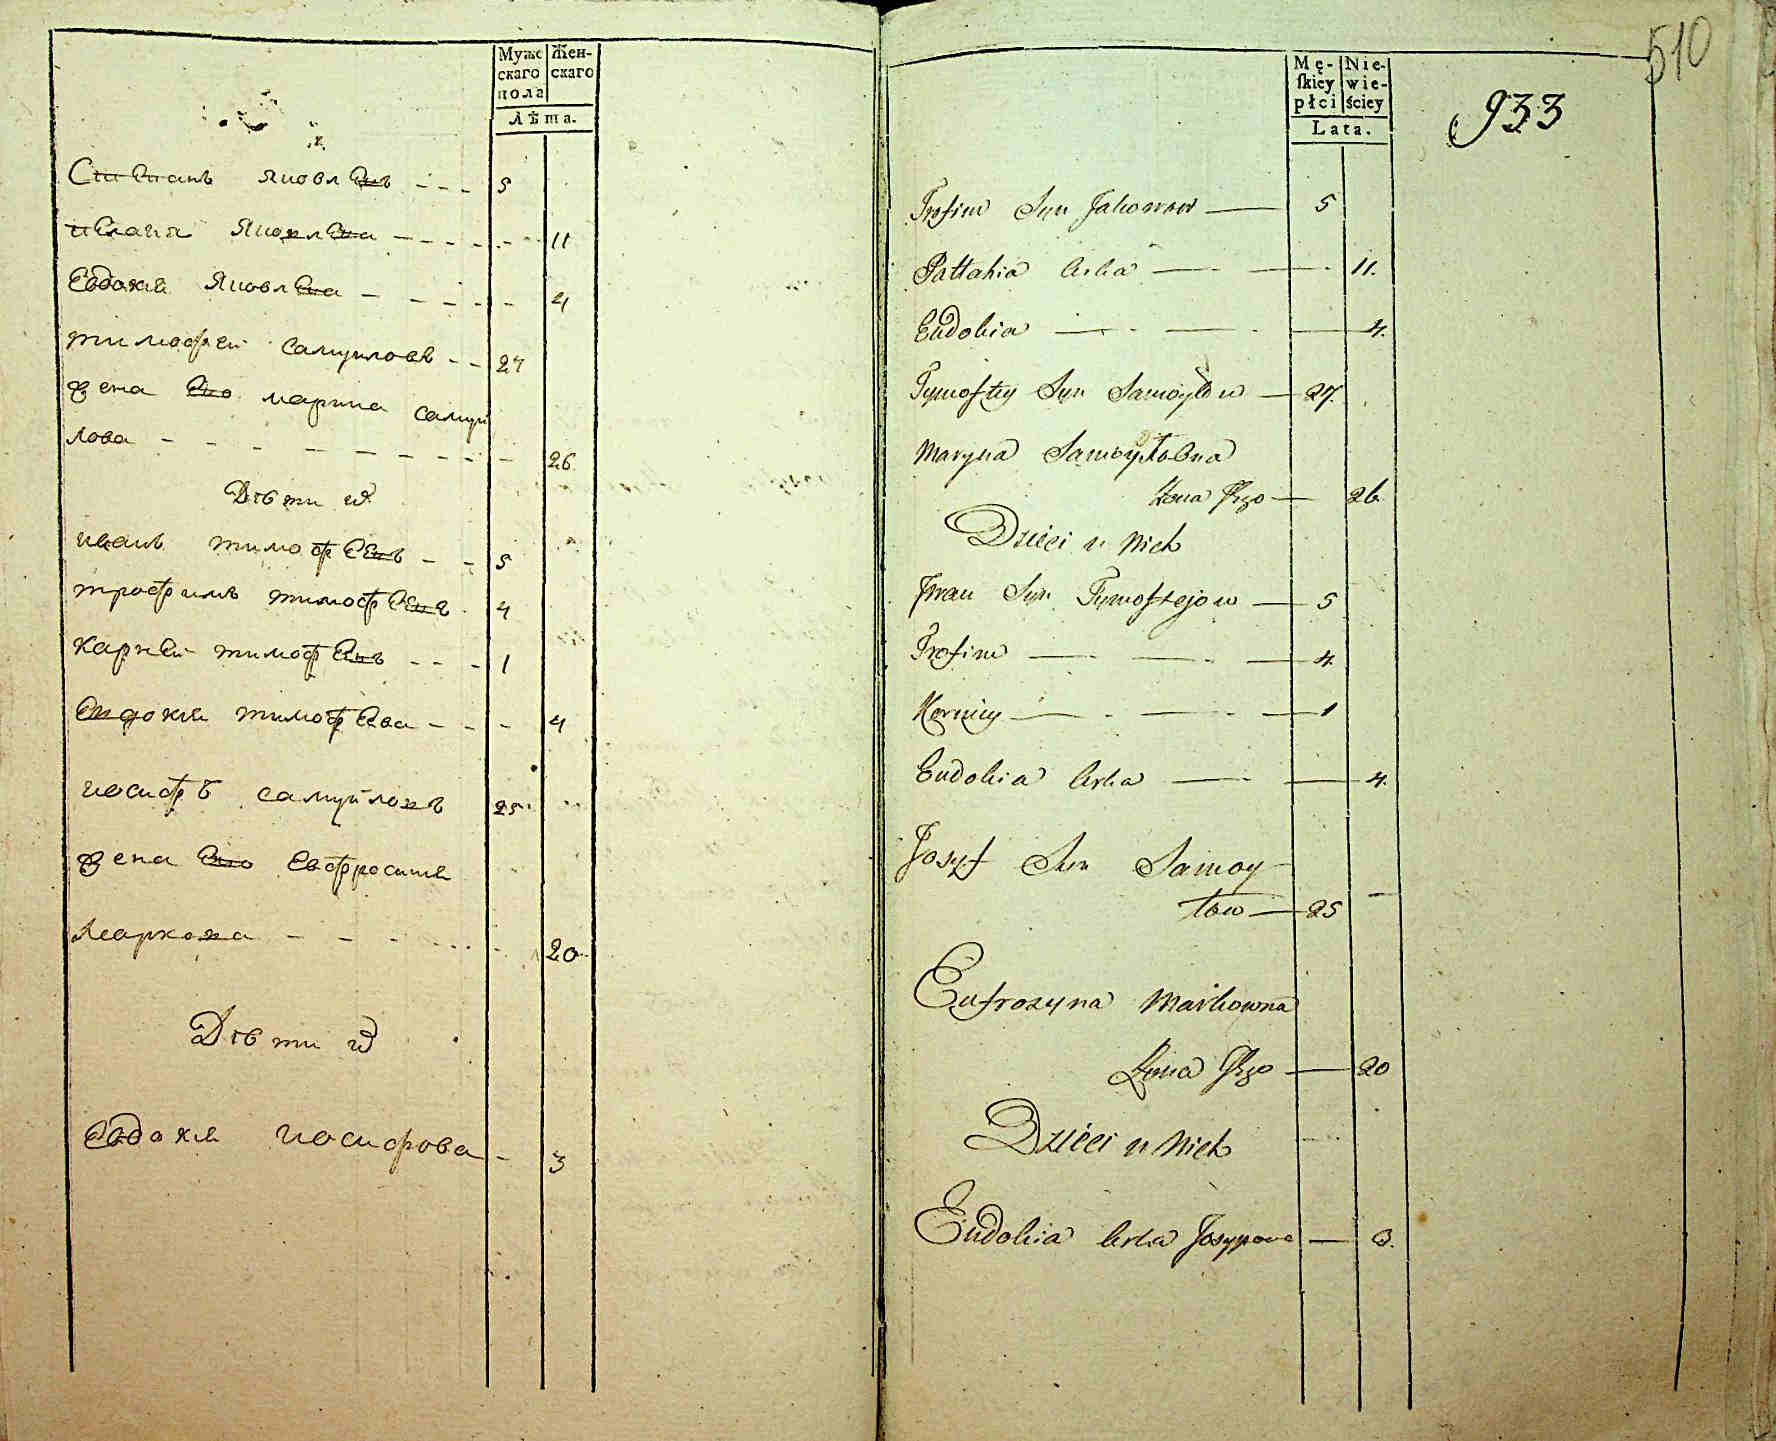 Муже
скаго
пола
Жен-
скаго
Лѣта.
Степанъ Яковлевъ - - - 5
Яковлева - - - - - - 11
Евдокия Яковлева - - - - - - 4
тимофеи Самуиловъ - - 27
жена Ево марина самуи
лова - - - - - - - - - 26
Дѣти их
иванъ тимофеевъ - - 5
трофимъ тимофеевъ 4
карнеи тимофеевъ - - - 1
Евдокия тимофеева - - - 4
иосифъ самуиловъ 25
жена Ево Евфросиния
Маркова - - - - - - - 20
Дѣти их
Евдокия иосифова - 3
510
933
Mę-
skiey
płci
Nie-
wie-
ściey
Lata.
Trofim Syn Jakowow — 5
Pattahia Corka — — 11.
Eudokia — — — 4.
Tymoftey Syn Samoyłow — 27.
Maryna Samoyłowna
Żona Jego — 26
Dzieci u Nich
Jwan Syn Tymoftejow — 5
Trofim — — — 4.
Korniey — — — 1
Eudokia Corka — — 4.
Josyf Syn Samoy-
łow — 25
Eufrozyna Markowna
Żona Jego — 20
Dzieci u Nich
Eudokia Corka Josypowa — 3.